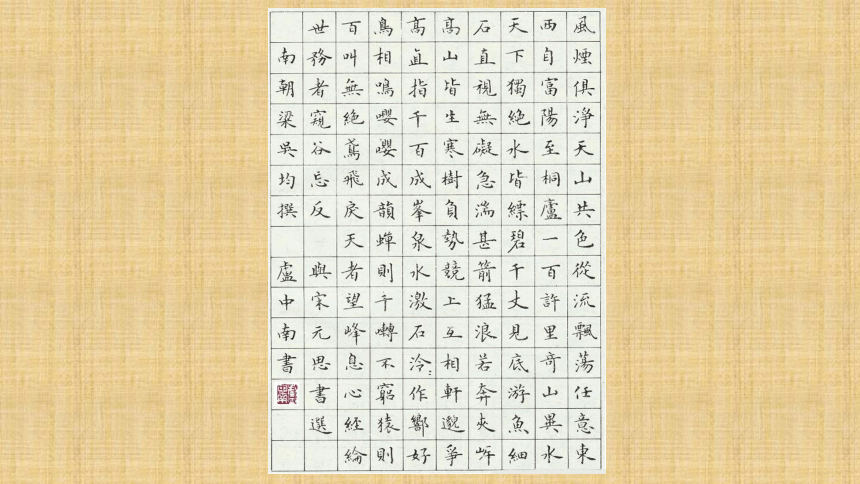 風煙俱淨天山共色從流飄蕩任意東
西自富陽至桐廬一百許里奇山異水
天下獨絕水皆縹碧千丈見底游魚細
石直視無礙急湍甚箭猛浪若奔夾岸
高山皆生寒樹負勢競上互相軒邈爭
高直指千百成峯泉水激石泠:作響好
鳥相鳴嚶嚶成韻蟬則千囀不窮猿則
百叫無絕鳶飛戾天者望峰息心經綸
世務者窺谷忘反 與宋元思書選
南朝梁吳均撰 盧中南書